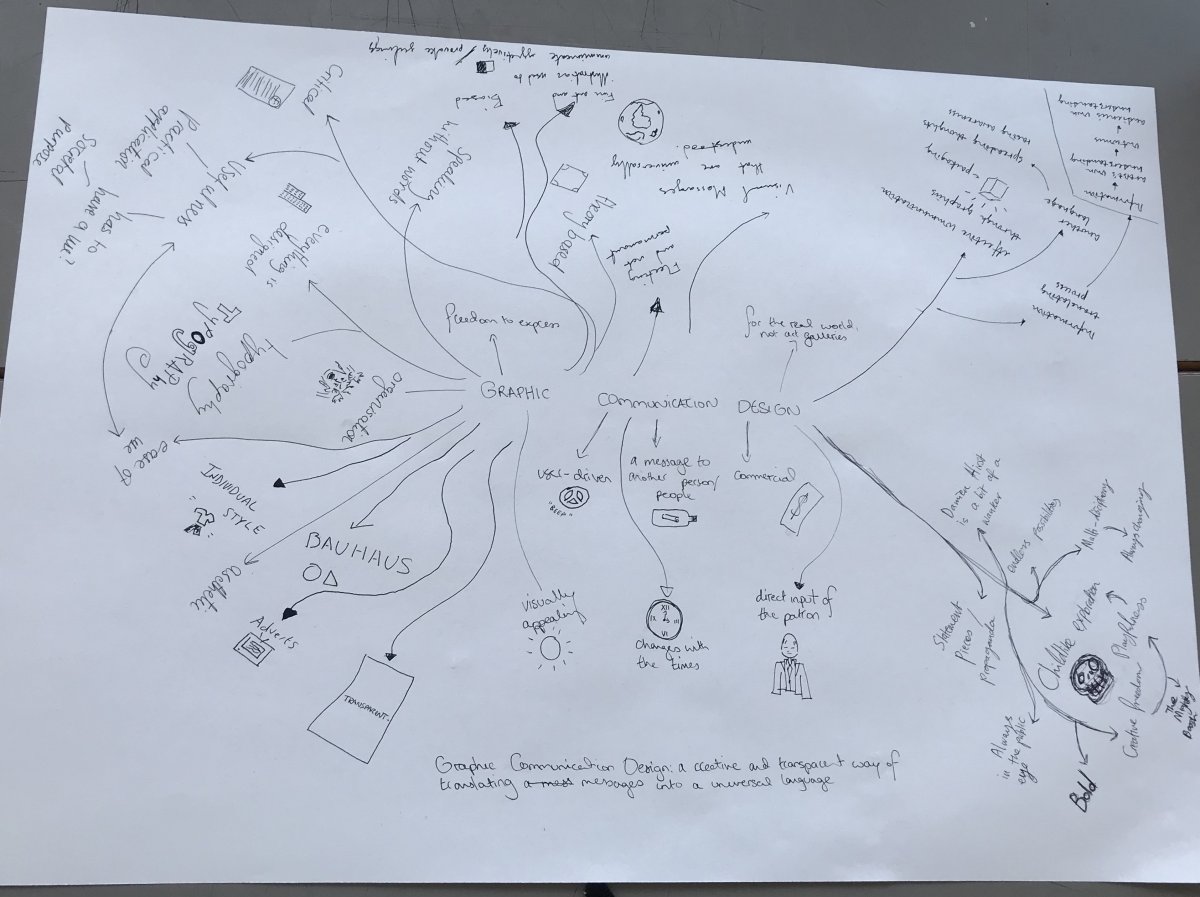 GRAPHIC
COMMUNICATION
DESIGN
freedom to express
for the real world,
not art galleries
Critical
Practical
application
Societal
purpose
Usefulness
has to
have a use?
Speaking
without words
everything is
designed
TypOgRAPhy
typography
organisation
ease of
use
INDIVIDUAL
STYLE
BAUHAUS
aesthetic
Adverts
TRANSPARENT
Biassed
Fine art and
illustration need to
communicate effectively / provoke feelings
theory based
Fleeting
and not
permanent
Visual Messages
that are universally
understood.
effective communication
through graphics
+ packaging
spreading thoughts
another
language
Information
artist's own
understanding
outcome
audience's own
understanding
Information
translating
process
user-driven
"BEEP"
a message to
another person/
people
commercial
visually
appealing
XII
III
VI
IX
changes with
the times
direct input of
the patron
Damien Hirst
is a bit of a
wanker
endless possibilities
Multi-disciplinary
Always changing
Statement
pieces /
propaganda
Childlike exploration
Playfulness
Creative freedom
The
Mighty
Boosh
Always
in the public
eye
Bold
Graphic Communication Design: a creative and transparent way of
translating a mess messages into a universal language